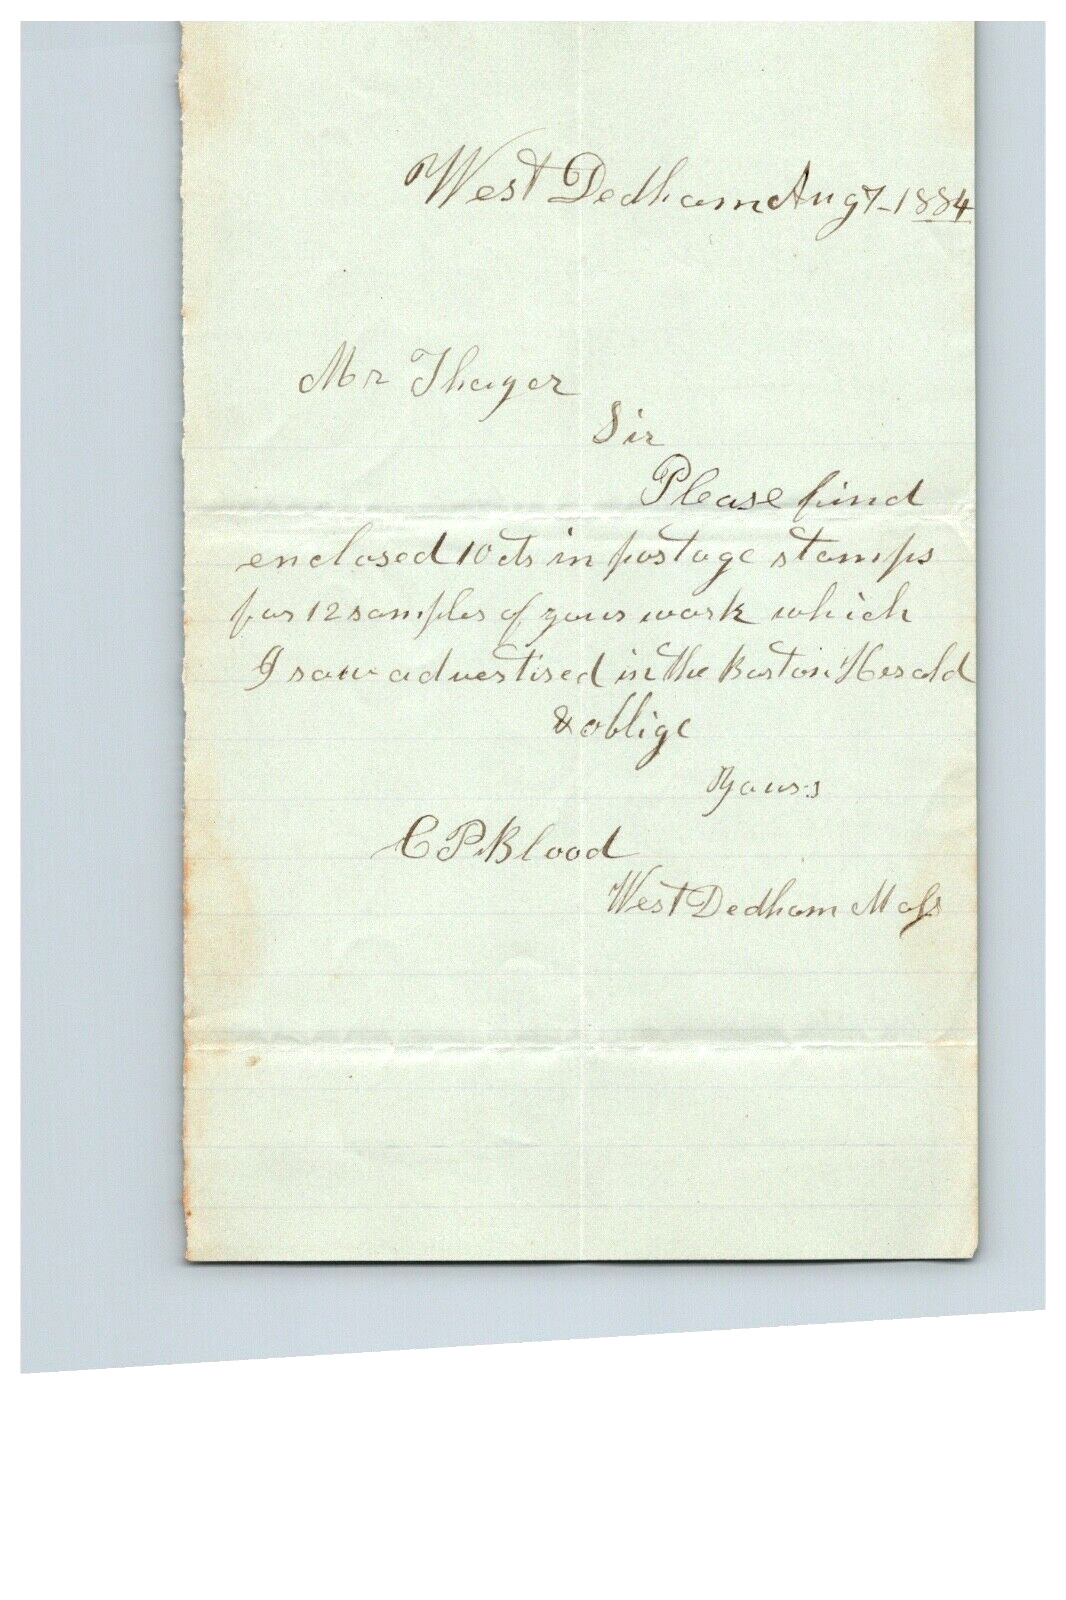 West Dedham Aug 7-1884
Mr Thayer
Sir
Please find
enclosed 10 cts in postage stamps
for 12 samples of your work which
I saw advertised in the Boston Herald
& oblige
Yours
C P Blood
West Dedham Mass